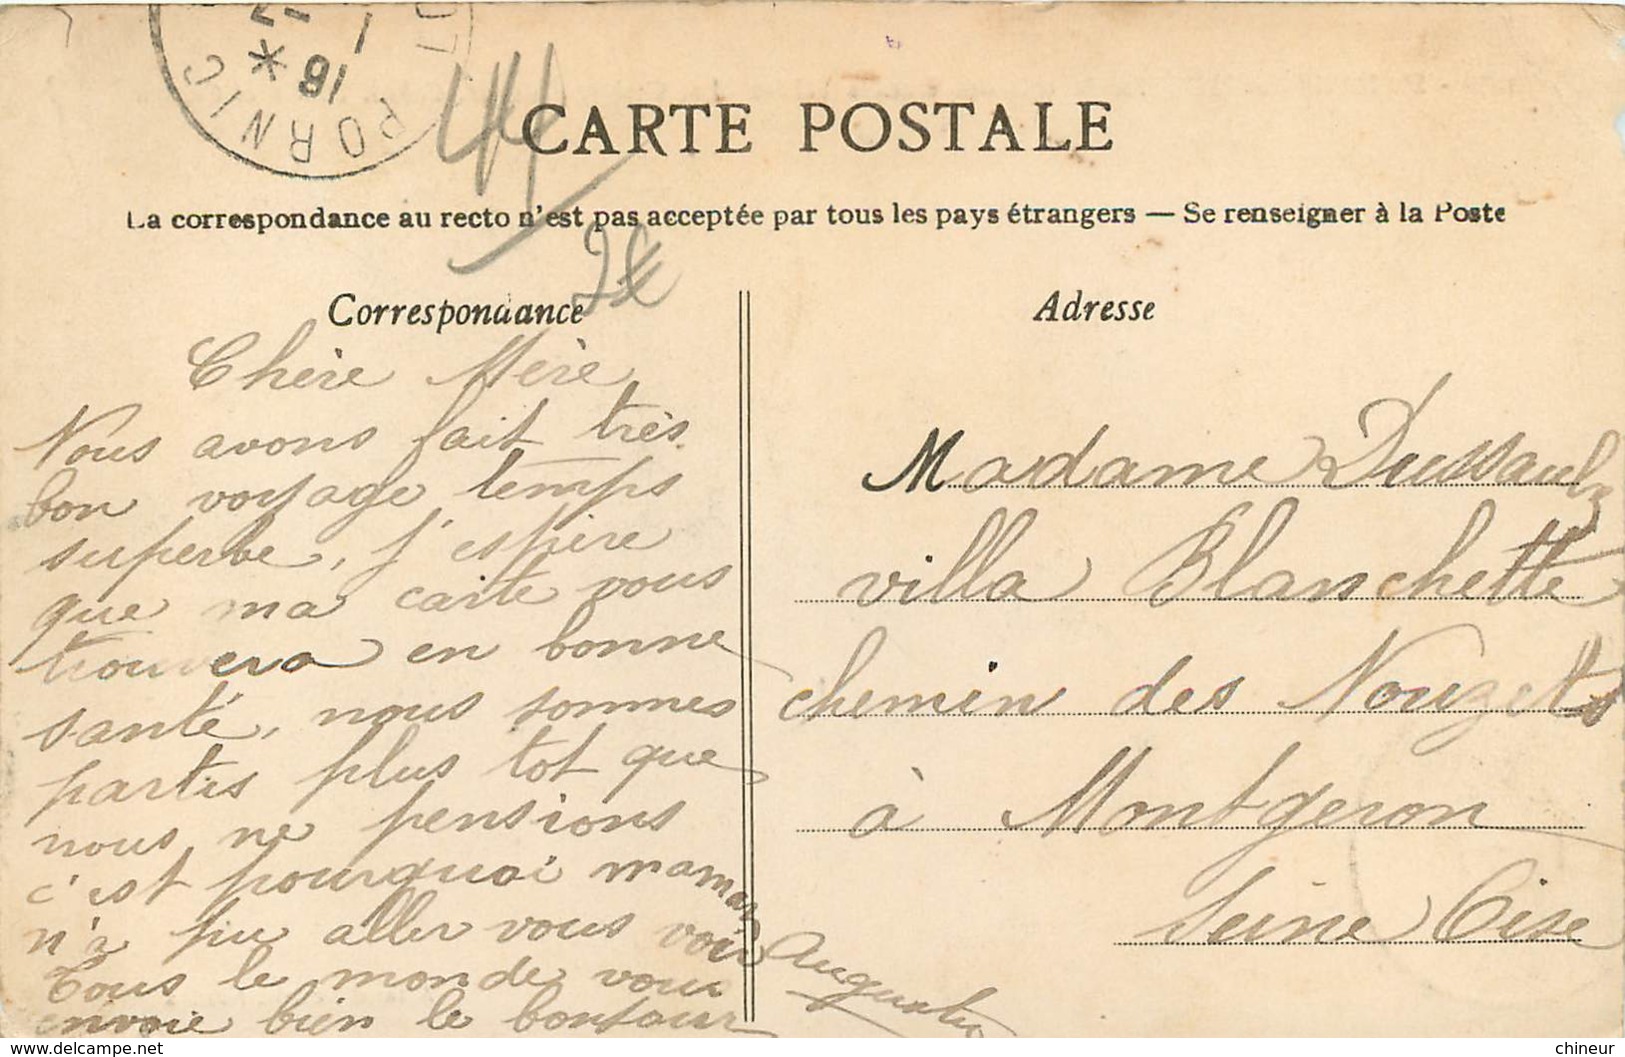 PORNIC
18
44
CARTE POSTALE
La correspondance au recto n'est pas acceptée par tous les pays étrangers — Se renseigner à la Poste
2€
Correspondance
Chère Mère
Nous avons fait très
bon voyage temps
superbe, j'espère
que ma carte vous
trouvera en bonne
santé, nous sommes
partis plus tot que
nous ne pensions
c'est pourquoi maman
n'a pu aller vous voir
Tous le monde vous
envoie bien le bonjour
Adresse
Madame Dussaulz
villa Blanchette
chemin des Nouzets
à Montgeron
Seine Oise
chineur
https://www.delcampe.net